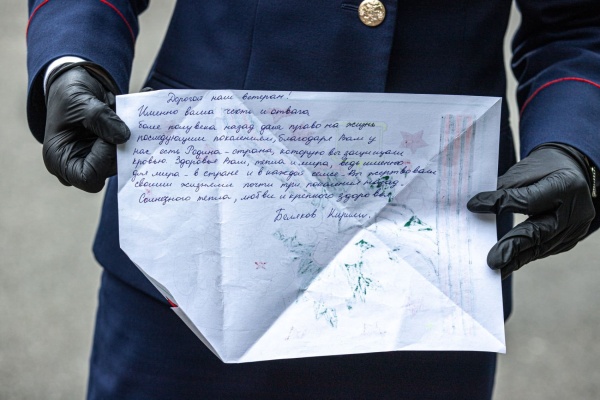 Дорогой наш ветеран!
Именно ваша честь и отвага
более полувека назад дала право на жизнь
последующим поколениям, благодаря Вам у
нас есть Родина - страна, которую вы защищали
кровью. Здоровья Вам, тепла и мира, ведь именно
для мира - в стране и в каждой семье - Вы жертвовали
своими жизнями почти три поколения назад.
Солнечного тепла, любви и крепкого здоровья
Беляков Кирилл.